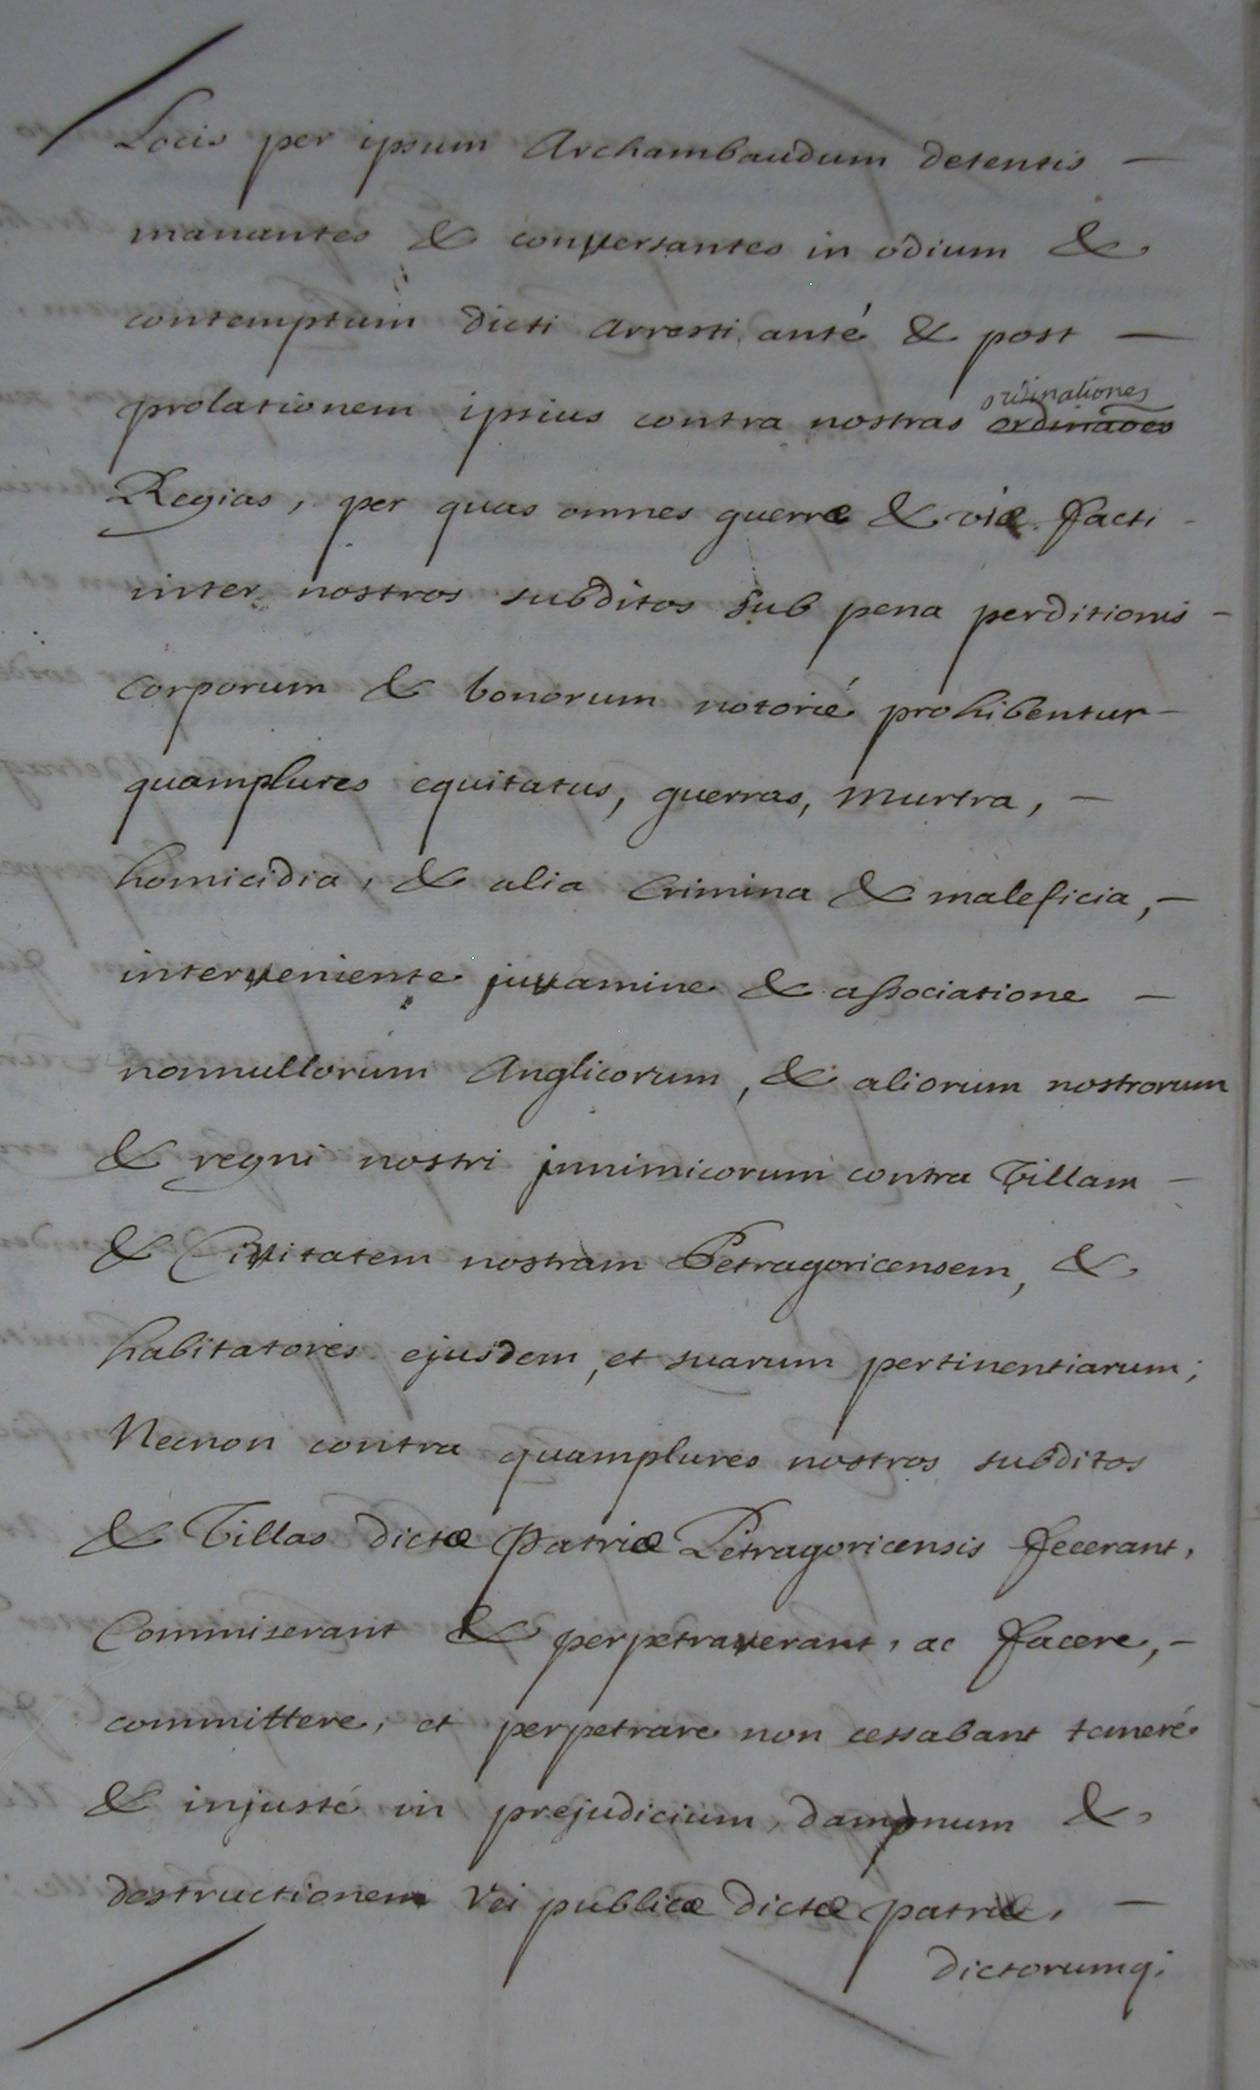 Locis per ipsum Archambaudum detentis —
manantes & conversantes in odium &
contemptum dicti arresti, anté & post —
prolationem ipsius contra nostras ordinationes ordinaões
Regias, per quas omnes guerræ & viæ facti -
inter nostros subditos sub pena perditionis -
corporum & bonorum notorié prohibentur -
quamplures equitatus, guerras, murtra, —
homicidia, & alia Crimina & maleficia, —
interveniente juvamine & associatione —
nonnullorum Anglicorum, & aliorum nostrorum
& regni nostri jnnimicorum contra Villam -
& Civitatem nostram Petragoricensem, &
habitatores ejusdem, et suarum pertinentiarum;
Necnon contra quamplures nostros subditos
& Villas dictæ Patriæ Petragoricensis fecerant,
Commiserant & perpetraverant, ac facere, -
committere, et perpetrare non cessabant temeré
& injusté in prejudicium, dampnum &
destructionem rei publicæ dictæ patriæ, —
dictorumq;